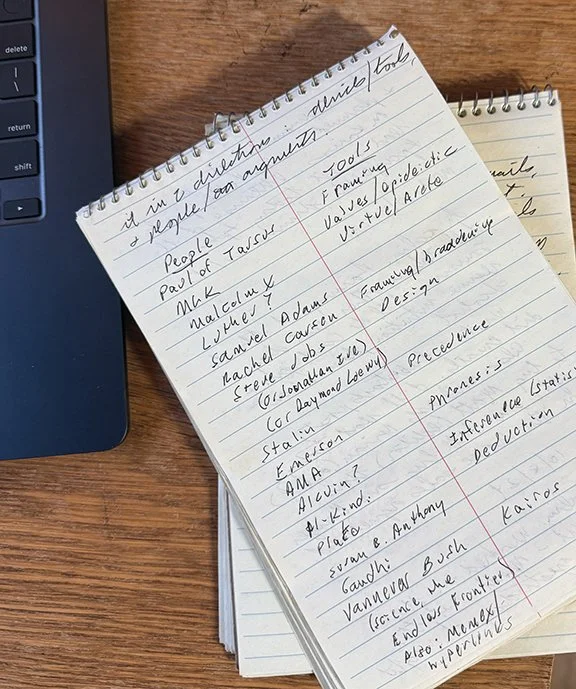 delete
|
\
return
shift
it in 2 directions: devices/tools,
+ people/ arguments.
People
Paul of Tarsus
MLK
Malcolm X
Luther?
Samuel Adams
Rachel Carson
Steve Jobs
(or Jonathan Ive)
(or Raymond Loewy)
Stalin
Emerson
AMA
Alcuin?
Al-Kindi
Plato
Susan B. Anthony
Gandhi
Vannever Bush
(Science, the
Endless Frontier)
Also: Memex/
hyperlinks
Tools
Framing
Values/Epideictic
Virtue/Arete
Framing/Broadening
Design
Precedence
Phronesis
Inference (statis
Deduction
Kairos